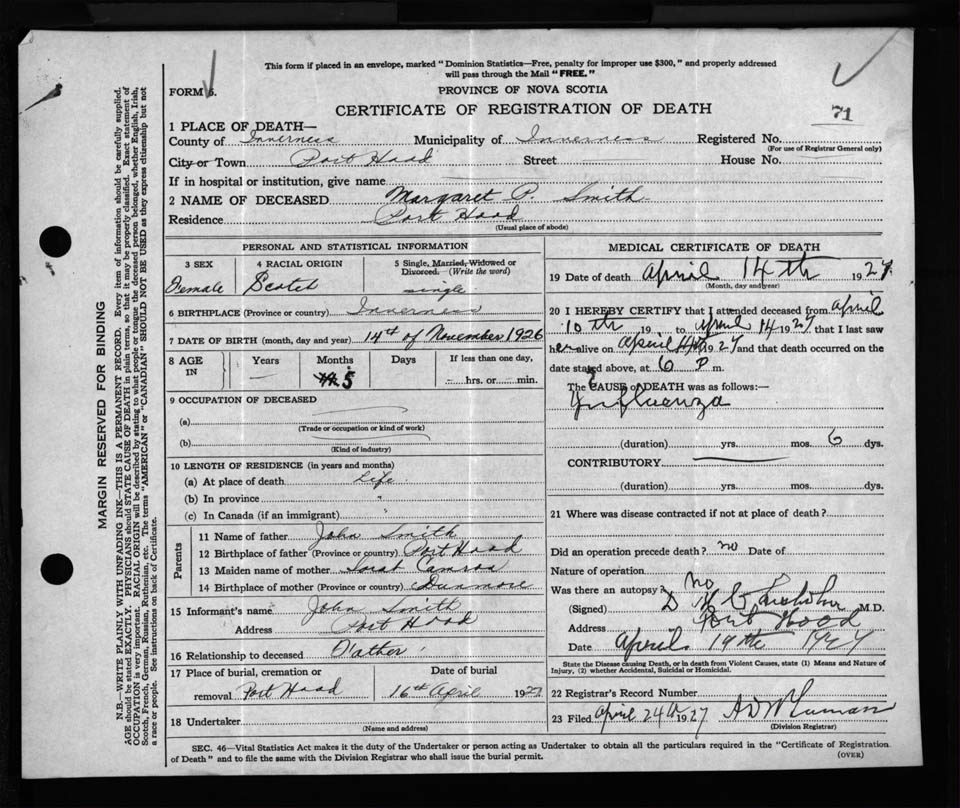 This form if placed in an envelope, marked "Dominion Statistics—Free, penalty for improper use $300," and properly addressed
will pass through the Mail "FREE."
FORM 6.
PROVINCE OF NOVA SCOTIA
CERTIFICATE OF REGISTRATION OF DEATH
71
1 PLACE OF DEATH—
County of Inverness Municipality of Inverness Registered No.
(For use of Registrar General only)
City or Town Port Hood Street House No.
If in hospital or institution, give name
2 NAME OF DECEASED Margaret P. Smith
Residence Port Hood
(Usual place of abode)
PERSONAL AND STATISTICAL INFORMATION
3 SEX 4 RACIAL ORIGIN 5 Single, Married, Widowed or
Divorced. (Write the word)
Female Scotch single
6 BIRTHPLACE (Province or country) Inverness
7 DATE OF BIRTH (month, day and year) 14th of November 1926
8 AGE IN Years Months Days If less than one day,
5 hrs. or min.
9 OCCUPATION OF DECEASED
(a)
(Trade or occupation or kind of work)
(b)
(Kind of industry)
10 LENGTH OF RESIDENCE (in years and months)
(a) At place of death Life
(b) In province "
(c) In Canada (if an immigrant) "
Parents
11 Name of father John Smith
12 Birthplace of father (Province or country) Port Hood
13 Maiden name of mother
14 Birthplace of mother (Province or country) Dunmore
15 Informant's name John Smith
Address Port Hood
16 Relationship to deceased Father
17 Place of burial, cremation or Date of burial
removal Port Hood 16th April 1927
18 Undertaker
(Name and address)
MEDICAL CERTIFICATE OF DEATH
19 Date of death April 14th 1927
(Month, day and year)
20 I HEREBY CERTIFY that I attended deceased from April
10th 19 to April 14 1927 that I last saw
her alive on April 14th 1927 and that death occurred on the
date stated above, at 6 P m.
The CAUSE of DEATH was as follows:—
Influenza
(duration) yrs. mos. 6 dys.
CONTRIBUTORY
(duration) yrs. mos. dys.
21 Where was disease contracted if not at place of death?
Did an operation precede death? no Date of
Nature of operation
Was there an autopsy? no
(Signed) M.D.
Address Port Hood
Date April 19th 1927
State the Disease causing Death, or in death from Violent Causes, state (1) Means and Nature of
Injury, (2) whether Accidental, Suicidal or Homicidal.
22 Registrar's Record Number
23 Filed April 24th 1927
(Division Registrar)
SEC. 46—Vital Statistics Act makes it the duty of the Undertaker or person acting as Undertaker to obtain all the particulars required in the "Certificate of Registration
of Death" and to file the same with the Division Registrar who shall issue the burial permit.
(OVER)
MARGIN RESERVED FOR BINDING
N.B.—WRITE PLAINLY WITH UNFADING INK—THIS IS A PERMANENT RECORD. Every item of information should be carefully supplied.
AGE should be stated EXACTLY. PHYSICIANS should STATE CAUSE OF DEATH in plain terms, so that it may be properly classified. Exact statement of
OCCUPATION is very important. RACIAL ORIGIN will be described by stating to what people or tongue the deceased person belonged, whether English, Irish,
Scotch, French, German, Russian, Ruthenian, etc. The terms "AMERICAN" or "CANADIAN" SHOULD NOT BE USED as they express citizenship but not
a race or people. See instructions on back of Certificate.